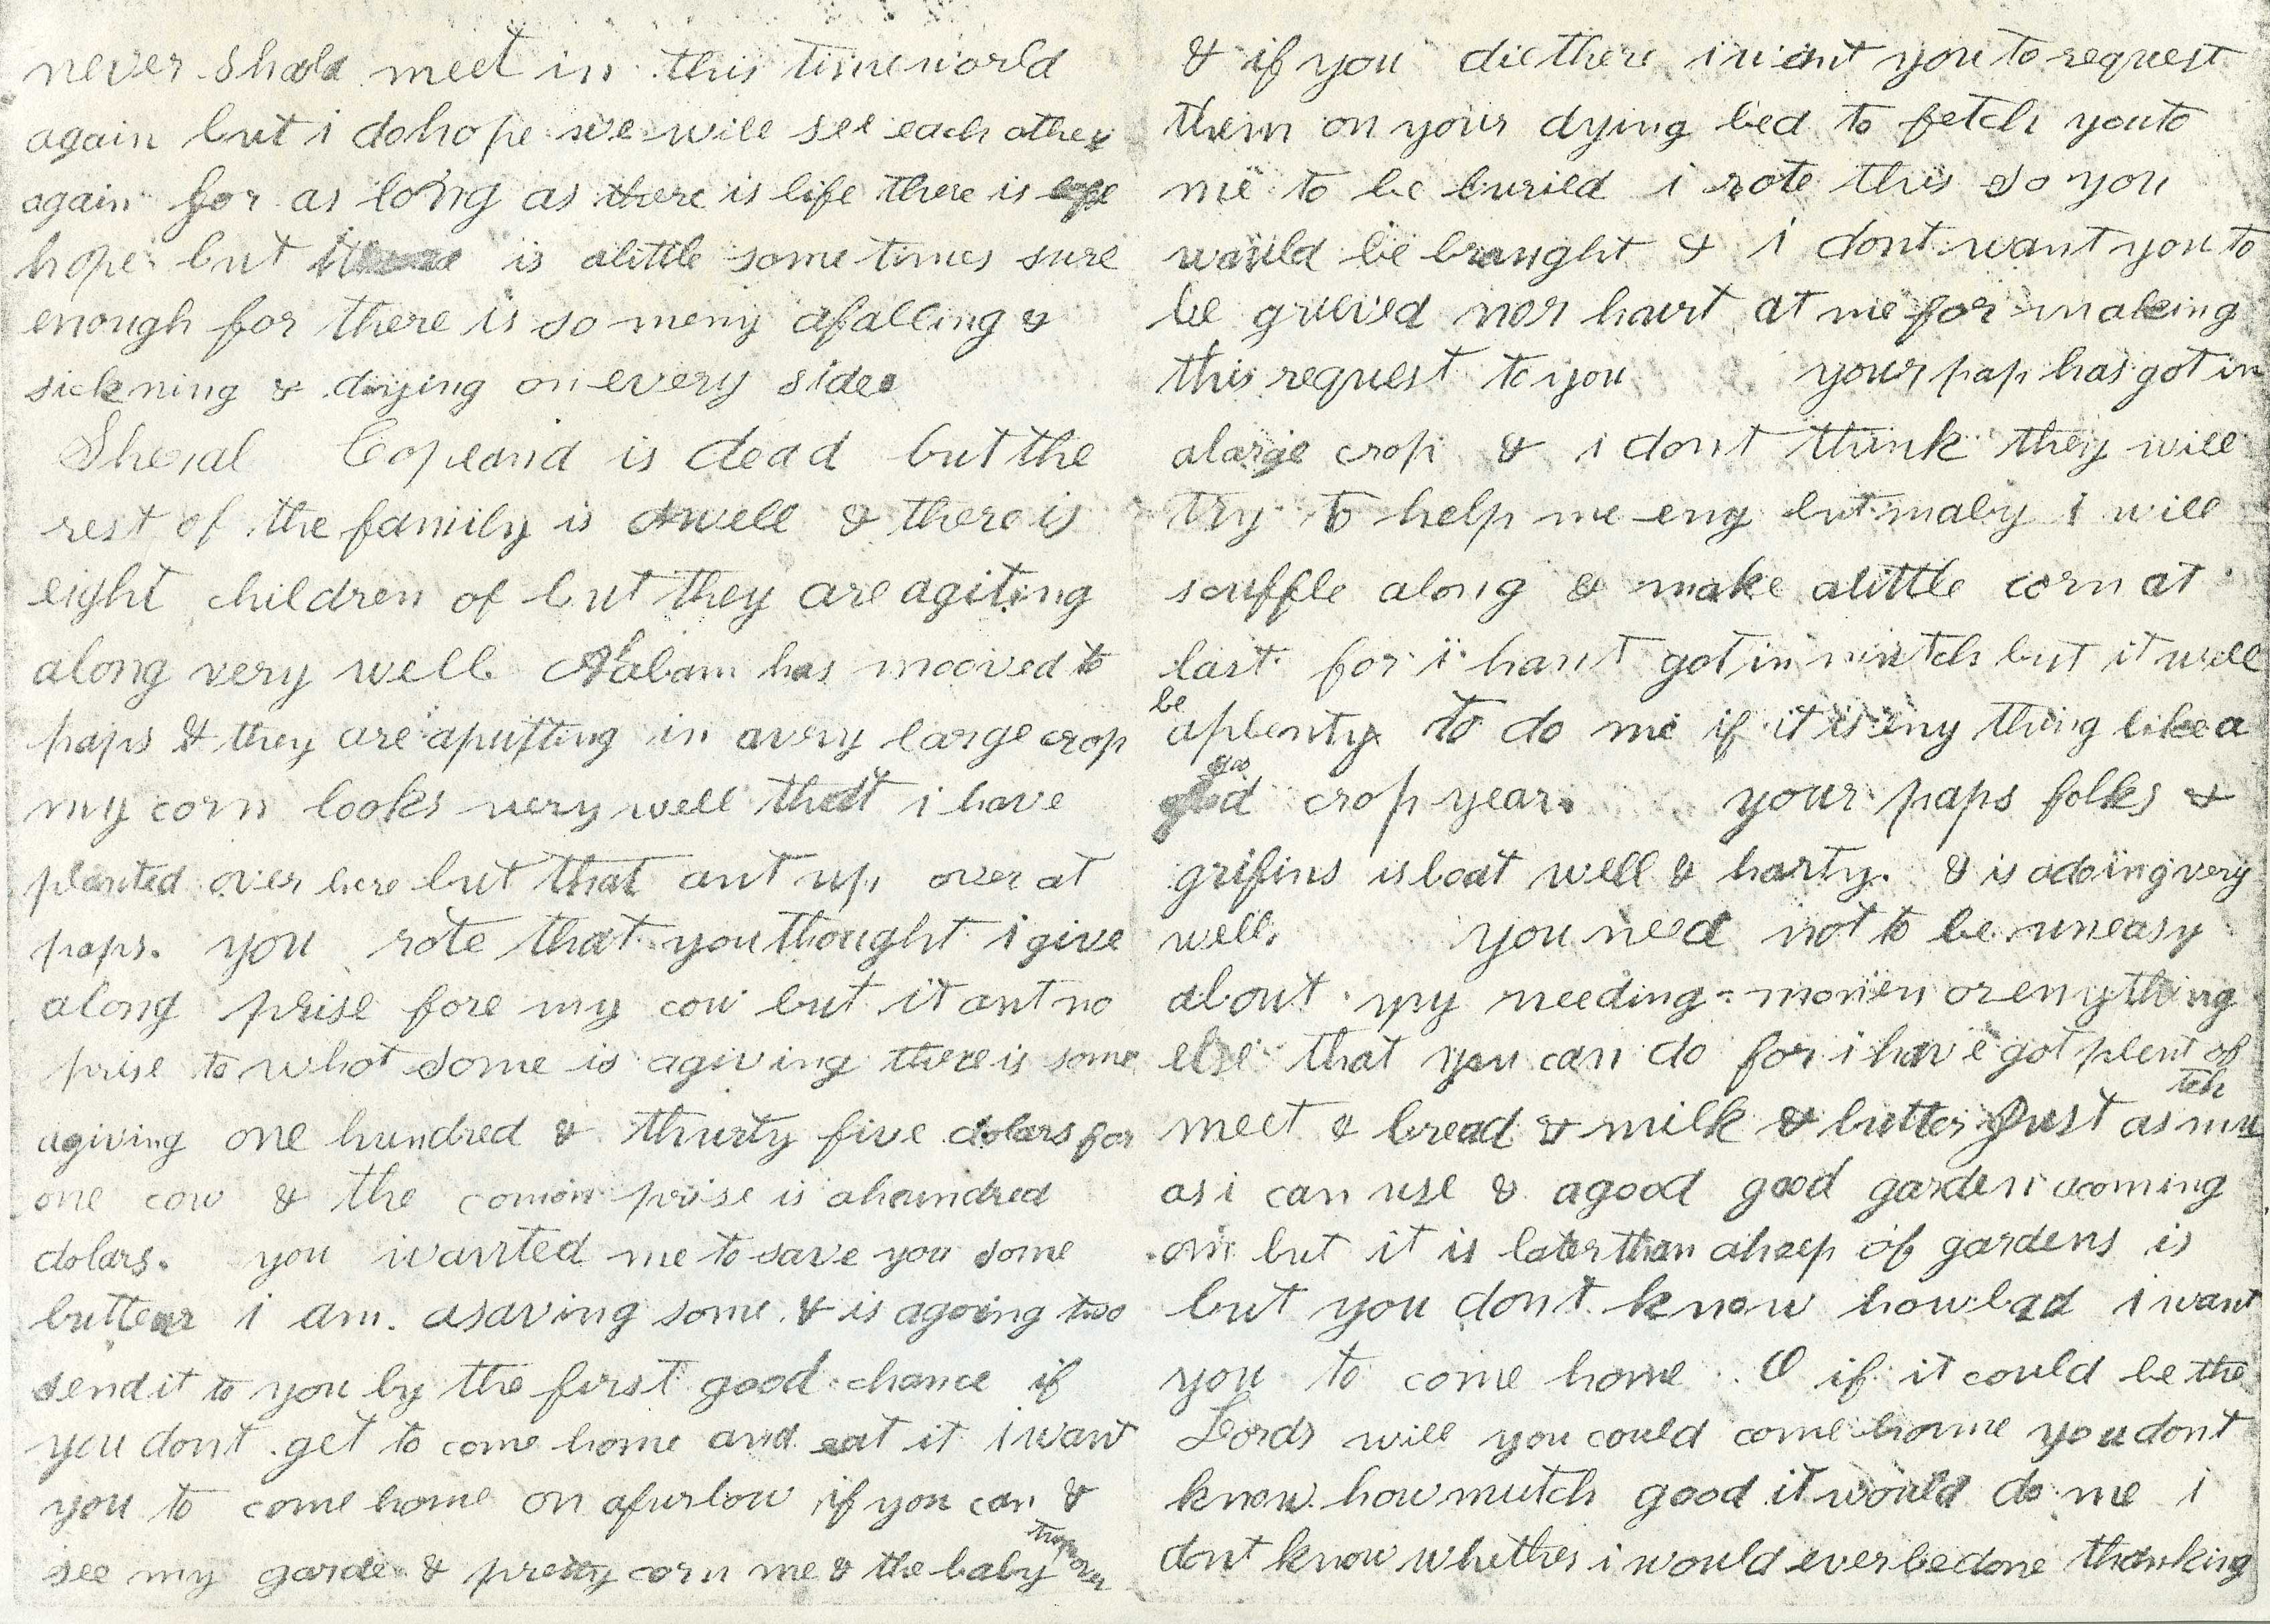 never shald meet in this time world
again but i do hope we will see each other
again for as long as there is life there is
hope but is alittle some times sure
enough for there is so meny afalling &
sickning & dying on every side
Sheral Copeland is dead but the
rest of the family is well & there is
eight children of but they are agiting
along very well has mooved to
paps & they are aputting in avery large crop
my corn looks very well that i have
planted over here but that ant up over at
paps. you rote that you thought i give
along prise fore my cow but it ant no
prise to what some is agiving there is some
agiving one hundred & thurty five dolars for
one cow & the comon prise is ahundred
dolars. you wanted me to save you some
butter i am asaving some & is agoing two
send it to you by the first good chance if
you dont get to come home and eat it i want
you to come home on afurlow if you can &
see my garden & pretty corn me & the baby
& if you die there i want you to request
them on your dying bed to fetch you to
me to be buried i rote this so you
would be braught & i dont want you to
be grieved nor hurt at me for making
this request to you your pap has got in
alarge crop & i dont think they will
try to help me eny but maby i will
scuffle along & make alittle corn at
last for i hant got in mutch but it will
be
aplenty to do me if it is eny thing like a
goo
d crop year. your paps folks &
grifins is boat well & harty. & is adoing very
well. you need not to be uneasy
about my needing monien or enything
else that you can do for i have got plent of
meet & bread & milk & butter Just as mu
tch
as i can use & agood good garden acoming
on but it is later than aheep of gardens is
but you dont know how bad i want
you to come home O if it could be the
Lords will you could come home you dont
know how mutch good it would do me i
dont know whether i would ever be done thanking